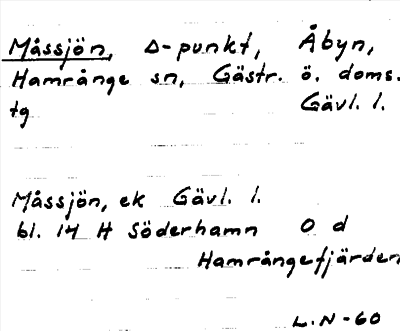 Måssjön, Δ-punkt, Åbyn,
Hamrånge sn, Gästr. ö. doms.
tg Gävl. l.
Måssjön, ek Gävl. l.
bl. 14 H Söderhamn O d
Hamrångefjärden
L.N-60